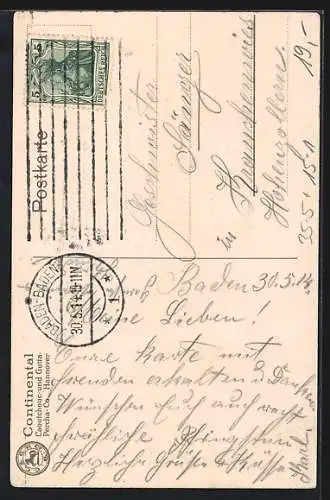 Postkarte
5 5
DEUTSCHES REICH
BADEN-BADEN
30.5.14. 11-12N
* 1 *
Geschwister
Sänger
in
Krauchenwies
Hohenzollern.
19,-
355 151
Baden 30.5.14.
Meine Lieben!
Eure Karte mit
Freuden erhalten u Danke.
Wünschen Euch auch recht
fröhliche Pfingsten
Herzliche Grüße & Küsse
Karl
Continental
Caoutchouc- und Gutta-
Percha-Co., Hannover